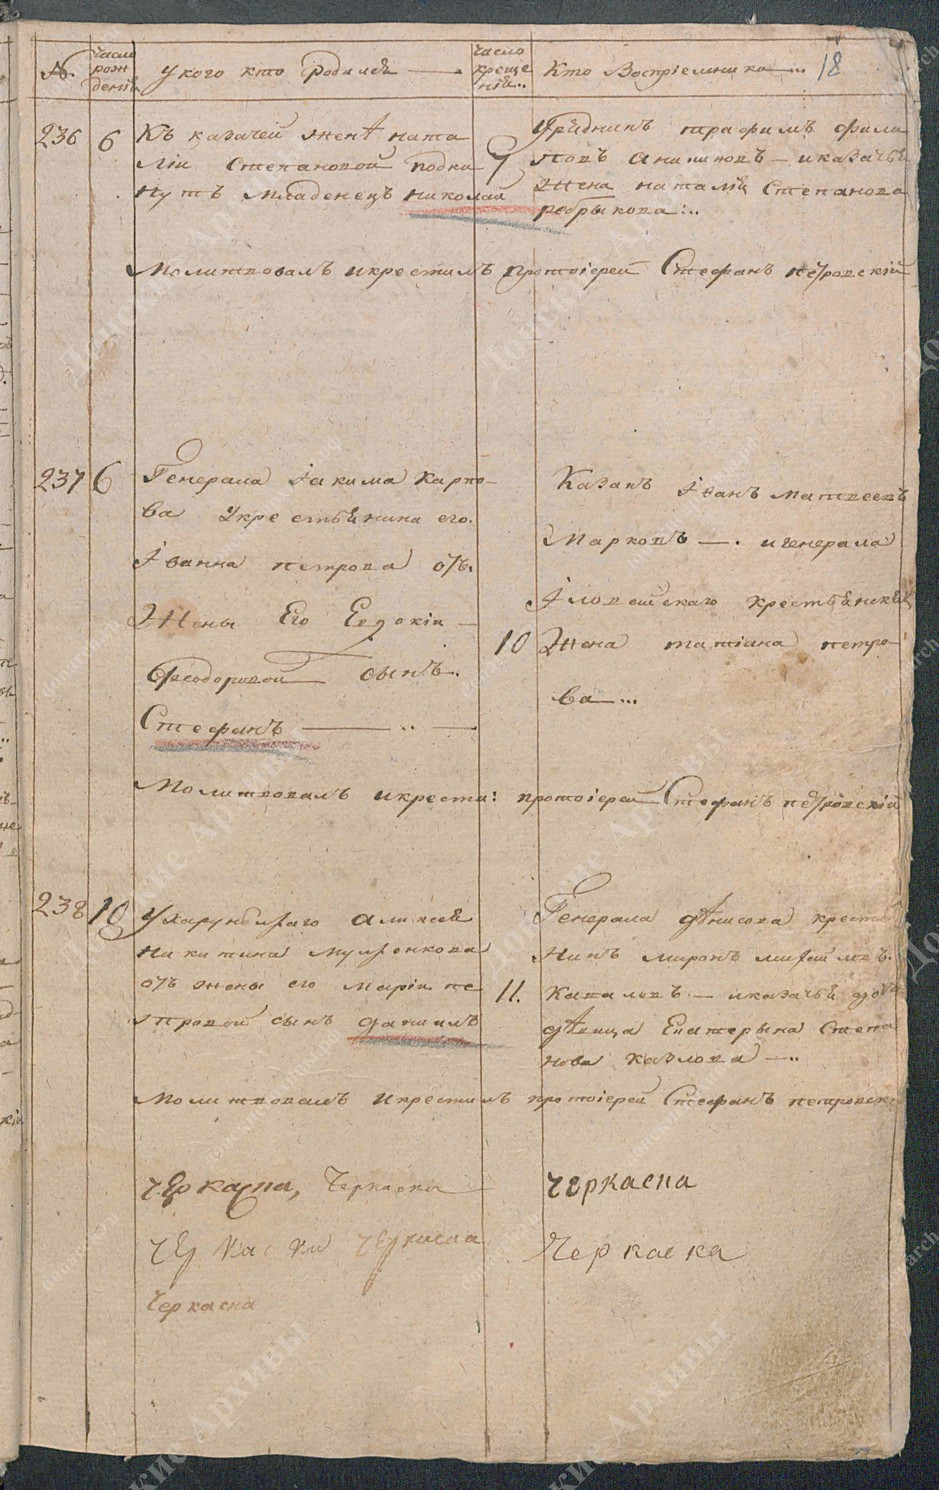 №.
число рож денiя
У кого кто родился
число креще нiя..
Кто Воспрiемники
18
236
6
Къ казачей женѣ ната
лiи Степановой подки
нутъ младенецъ николай
9
Урядникъ трафимъ фили
повъ аникиновъ — и казачья
Жена наталiя Степанова
ребрыкова...
Молитвовалъ и крестилъ протоiерей Стефанъ петровскiй
237
6
Генерала Iакима Карпо-
ва у крестьянина его
Iванна петрова отъ
Жены Его Евдокiи
Феодоровой сынъ.
Стефанъ
10
Казакъ Iванъ матвеевъ
Марковъ —. и генерала
Iловайскаго крестьянска
Жена татiана петро
ва —...
Молитвовалъ и крести: протоiерей Стефанъ петровскiй
238
10
У харунжаго аликсея
никитина
отъ жены его марiи пе
тровой сынъ данiилъ
11.
Генерала дѣнисова крестья
нинъ миронъ
— и казачья доч
дѣвица Екатерына степа
нова казлова —..
Молитвовалъ и крестилъ протоiерей Стефанъ петровскi
черкаска, Черкаска
черкаска
чер каски черкаска
Черкаска
Черкаска